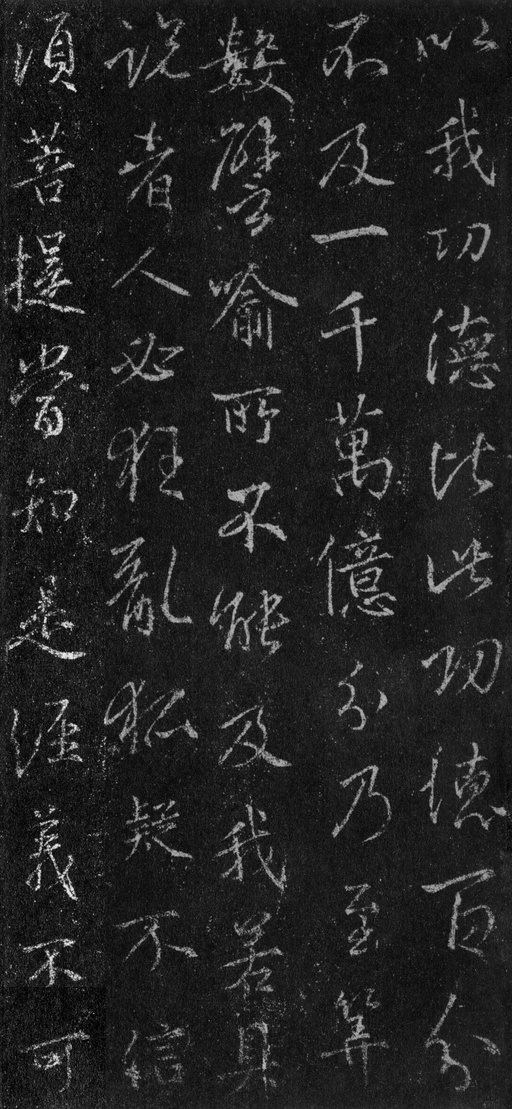 以我功德比此功德百分
不及一千萬億分乃至算
數譬喻所不能及我若具
說者人必狂亂狐疑不信
須菩提當知是經義不可